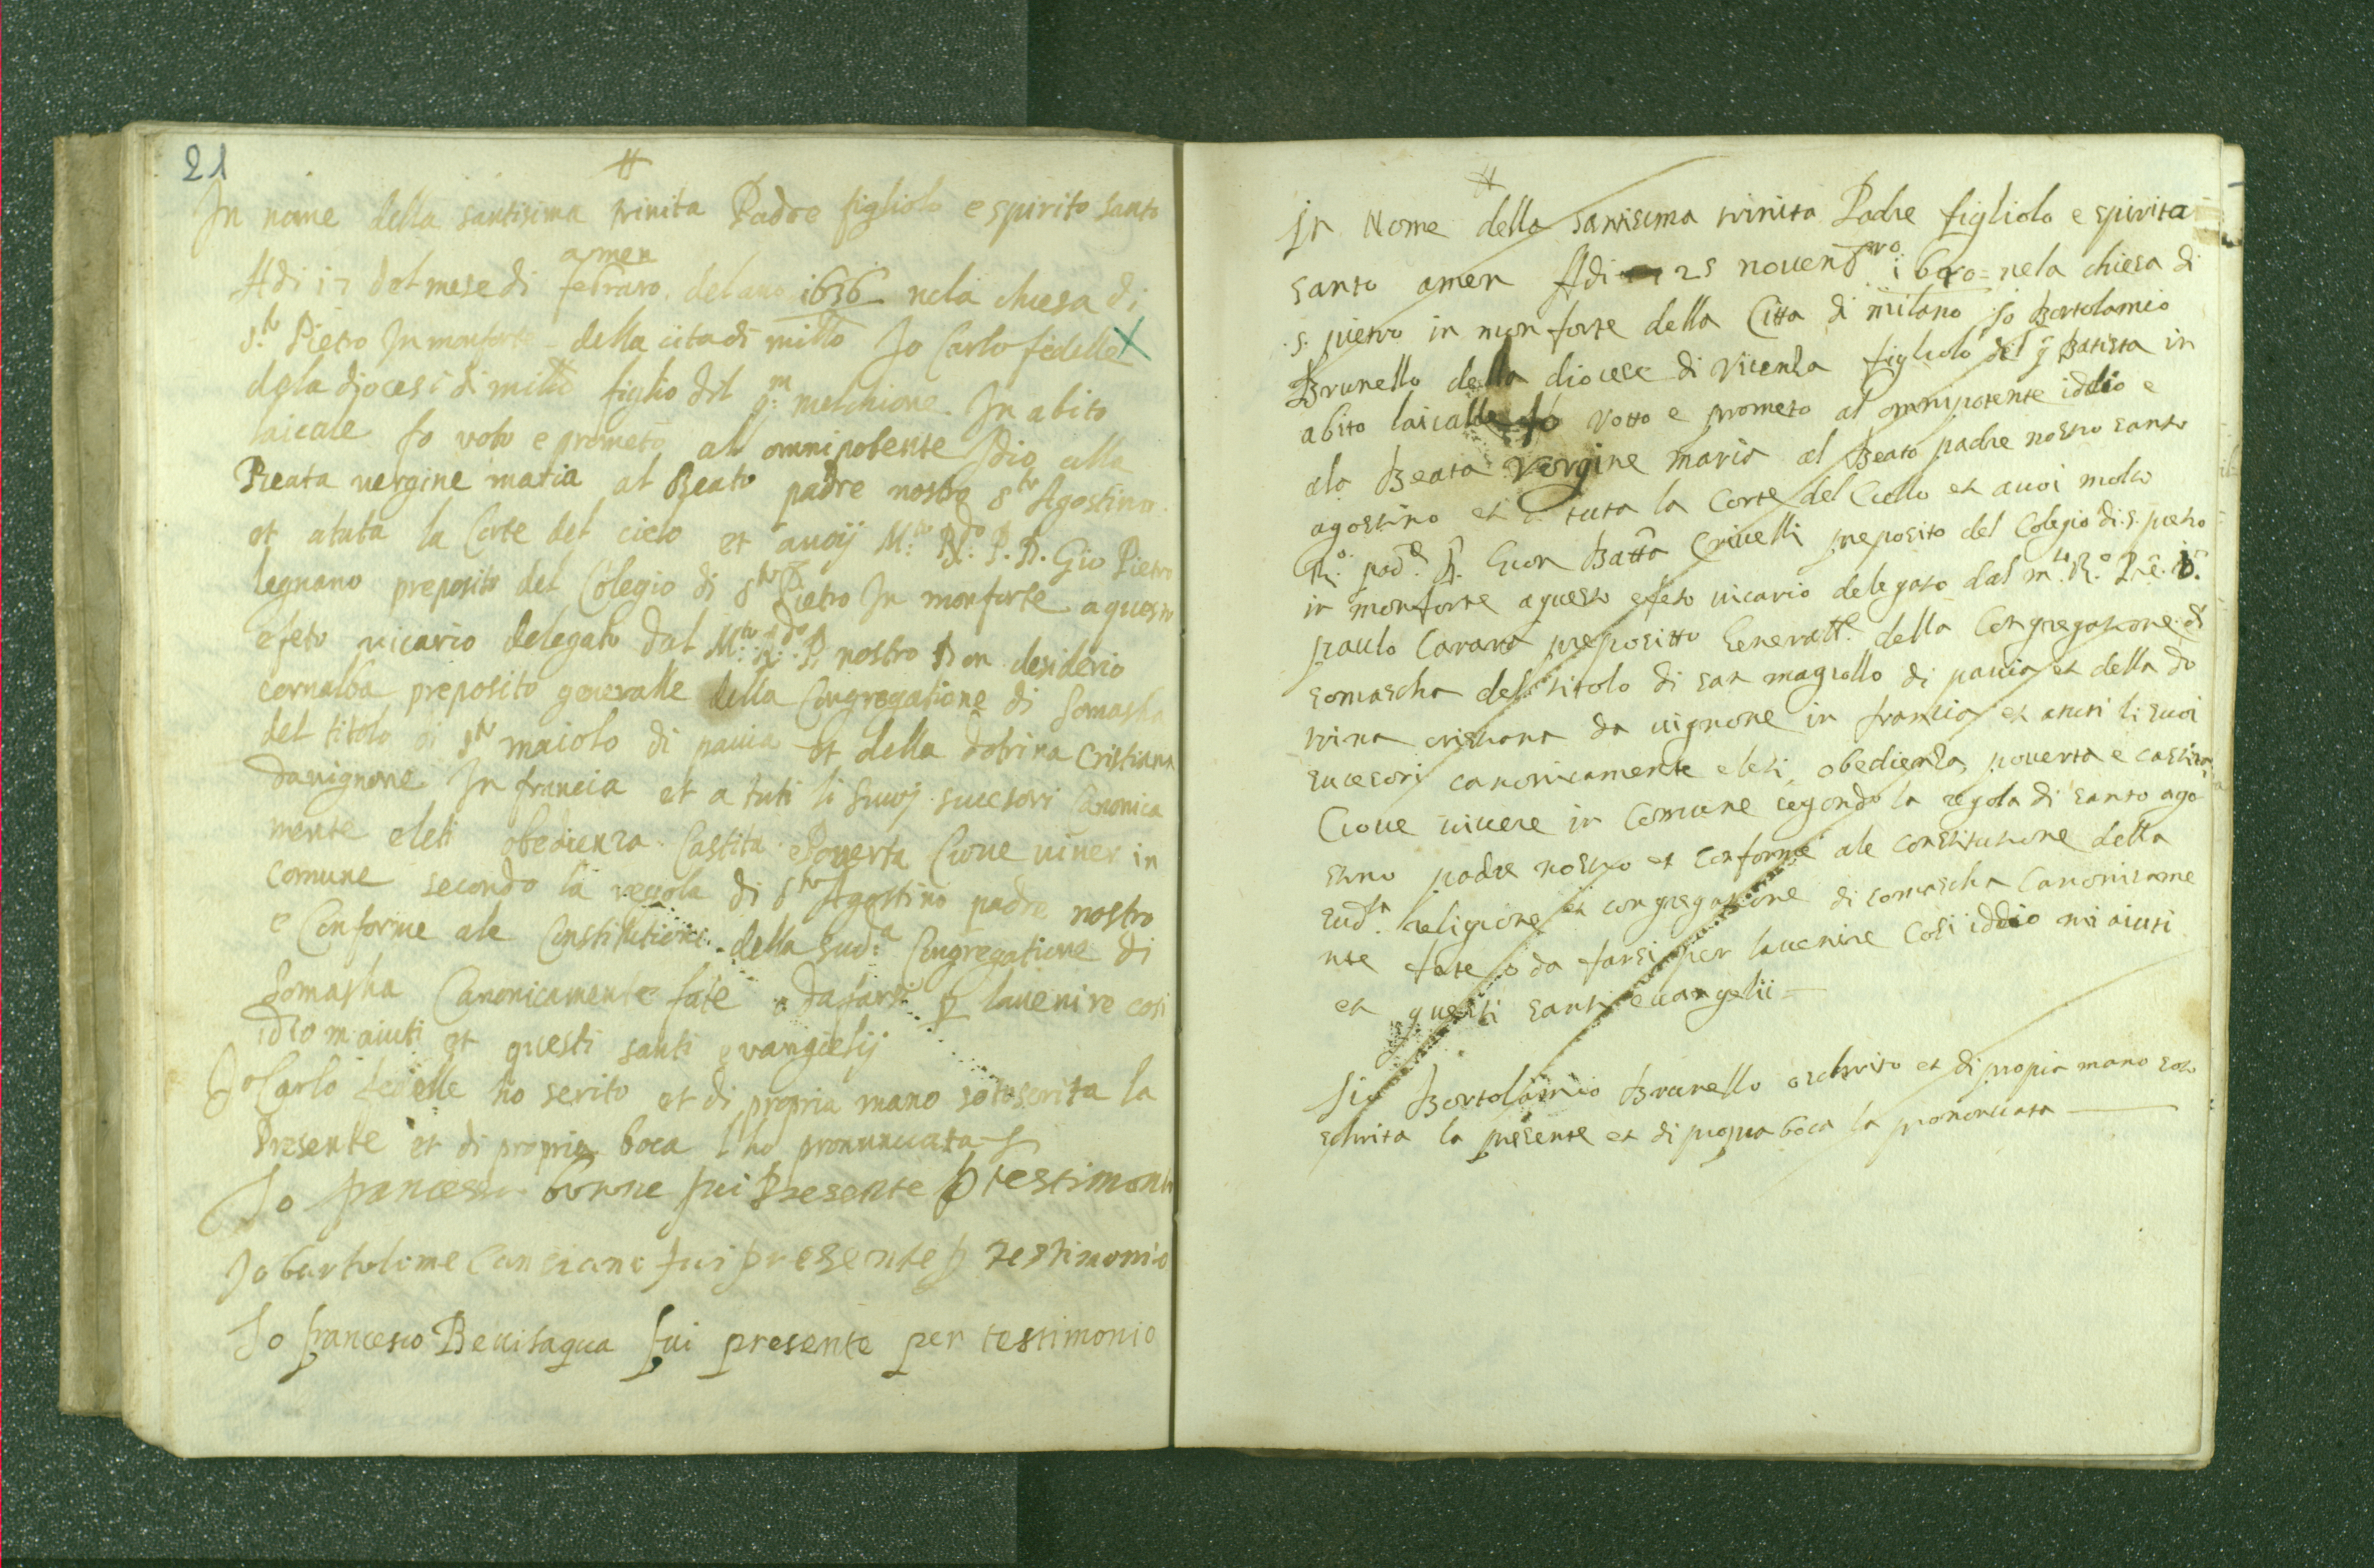 21
#
In nome della santisima trinita Padre figliolo e spirito santo
amen
Adi 17 del mese di febraro del ano 1636 nela chiesa di
S.to Pietro In monforte della cita di millo Jo Carlo fedelle X
dela diocesi di millo figlio dil q.m melchione In abito
laicale fo voto e prometo al omnipotente Idio alla
Beata vergine maria al Beato padre nostro s.to Agostino
et a tuta la Corte del cielo et avoij M.to R.do P. D. Gio Pietro
legnano preposito del Colegio di s.to Pietro In monforte a questo
efeto vicario delegato dal M.to R.do P. nostro Don desiderio
cornalba preposito generalle della Congregatione di Somasha
del titolo di s.to maiolo di pavia et della dotrina Cristiana
davignone In francia et a tuti li suoj sucesori Canonica
mente eleti obedienza Castita e Poverta Cioue viver in
comune secondo la regola di s.to Agostino padre nostro
e Conforme ale Constitutioni della sud.a Congregatione di
Somasha Canonicamente fate o da farsi p lavenire cosi
idio maiuti et questi santi evangielij
Jo Carlo fedelle ho scrito et di propria mano sotoscrita la
Presente et di propria boca l ho pronunciata
Jo francesco bonne fui Presente p testimonio
Jo bartolime Canciani fui presente p testimonio
Jo francesco Bevilaqua fui presente per testimonio
#
In Nome della santisima trinita Padre figliolo e spirita
santo amen Adi 25 novenbro 1640 nela chiesa di
s. pietro in monforte della Citta di milano Io Bortolamio
Brunello della diocese di Vicenza figliolo del q Batista in
abito laicalle fo votto e prometo al omnipotente iddio e
ala Beata Vergine maria al Beato padre nostro santo
agostino et a tuta la Corte del Ciello et avoi molto
R.o pad.e D. Gion Batta Crivelli preposito del Colegio di s. pietro
in monforte a questo efeto vicario delegato dal m.to R.o P.re D.
paulo Carara prepositto Generalle della Congregatione di
somascha del titolo di san magiollo di pavia et della do
trina cristiana da vignone in francia et a tuti li suoi
sucesori canonicamente eleti, obedienza, poverta e castita,
Cioue vivere in Comune segondo la regola di santo ago
stino padre nostro et Conforme ale constitutione della
sud.ta religione et congregatione di somascha Canonicame
nte fate o da farsi per lavenire Cosi iddio mi aiuti
et questi santi evangelii
Jio Bortolamio Brunello o schrito et di propia mano soto
schrita la presente et di propia boca la prononciata